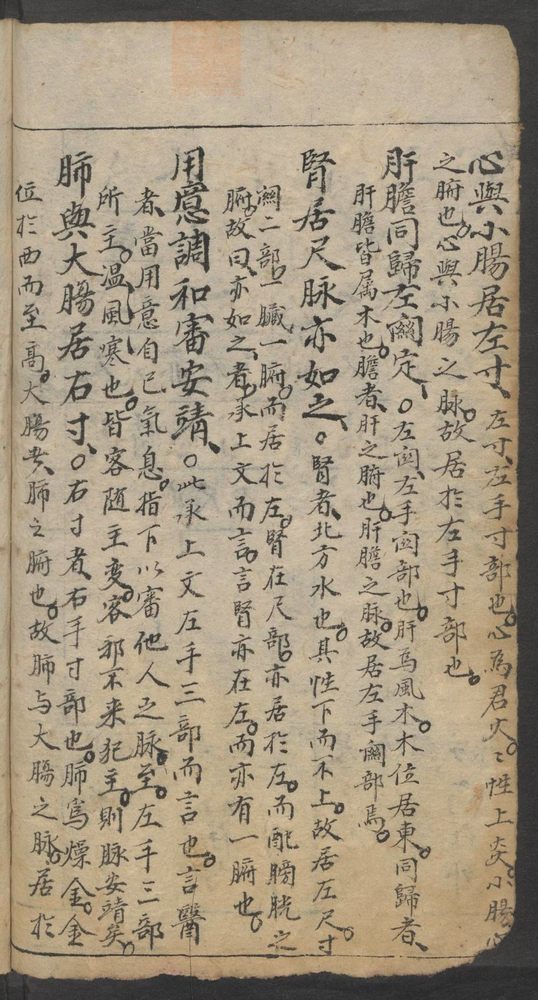 心與小腸居左寸、左寸、左手寸部也。心為君火。火〻性上炎。小腸心
之腑也。心與小腸之脉。故居於左手寸部也。
肝膽同歸左関定、○左関、左手関部也。肝為風木。木位居東。同歸者、
肝膽皆属木也。膽者、肝之腑也。肝膽之脉。故居左手関部焉。
腎居尺脉亦如之、○腎者、北方水也。其性下而不上。故居左尺寸。
関二部。一臟一腑。而居於左。腎在尺部。亦居於左。而配膀胱之
腑。故曰、亦如之、者。承上文而言。言腎亦在左。而亦有一腑也。
用意調和審安靖、○此承上文左手三部而言也。言醫
者、當用意自己氣息。指下以審他人之脉。至。左手三部
所主。温風寒也。皆客随主变。客邪不来犯主。則脉安靖矣。
肺與大腸居右寸、○右寸者、右手寸部也。肺爲燥金。金
位於西而至高。大腸者、肺之腑也。故肺与大腸之脉。居於